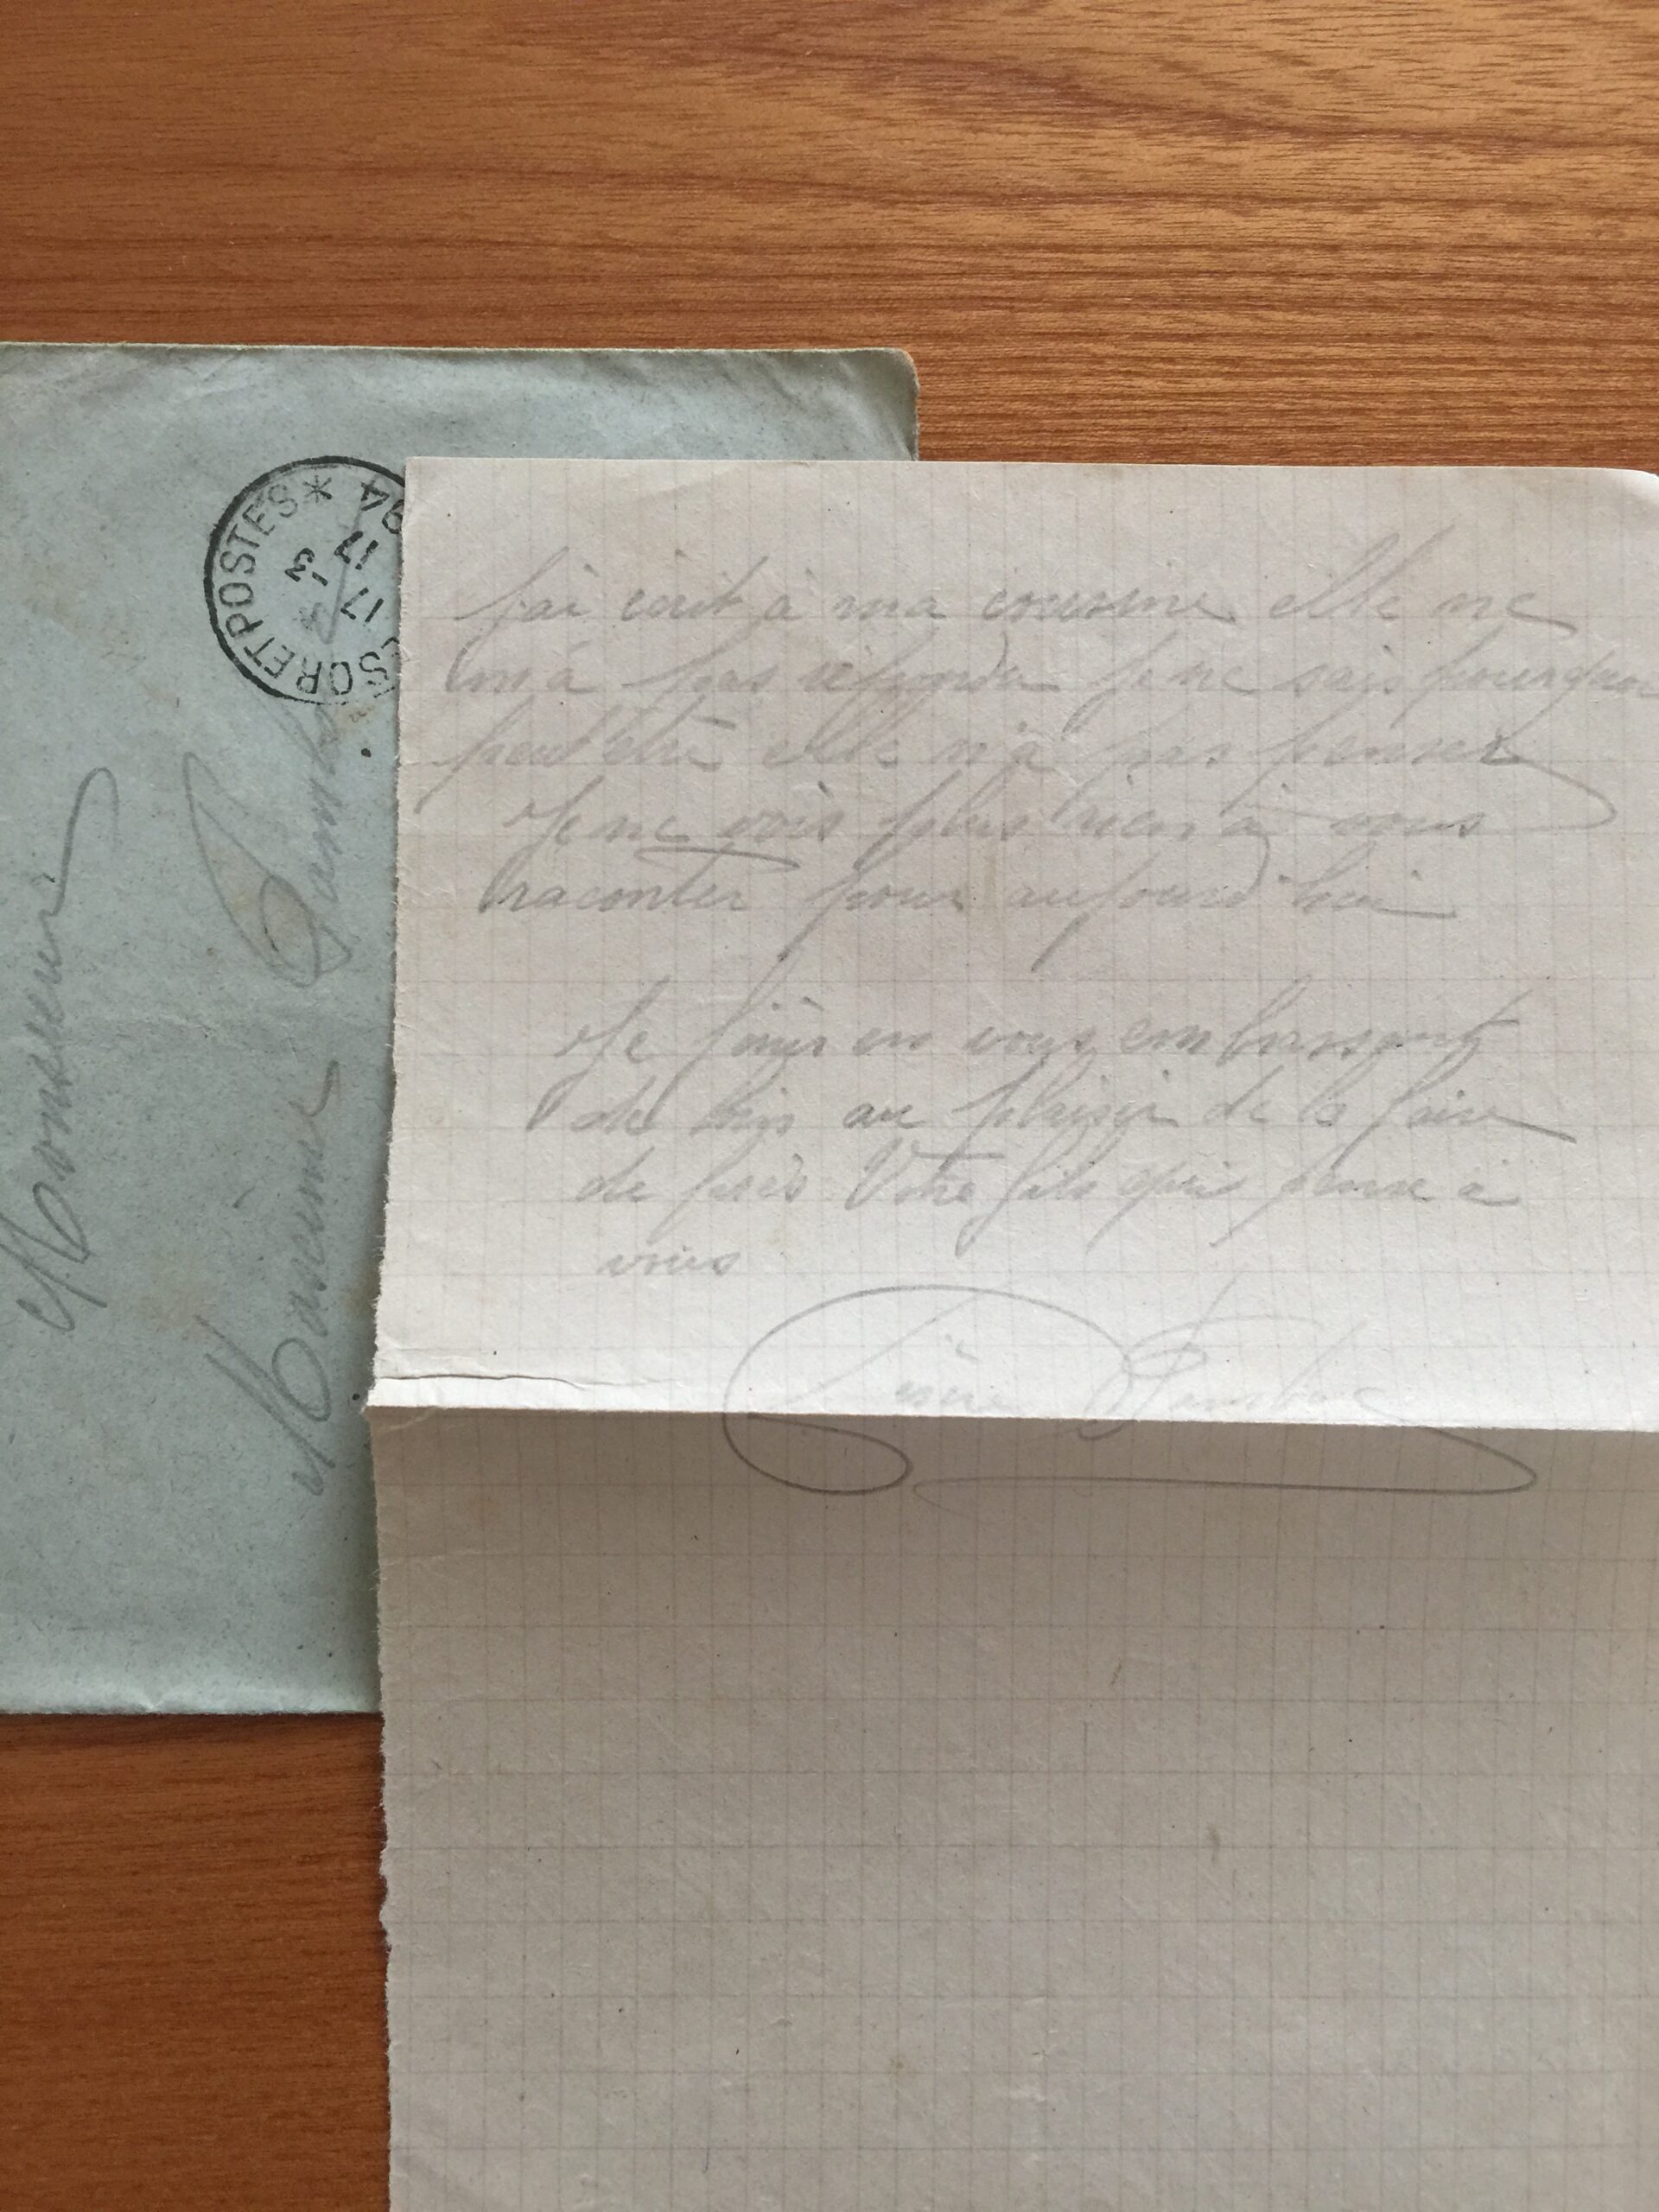 j'ai ecrit a ma cousine elle ne
m'a pas répondu je ne sais pourquoi
peut'etre elle n'a pas penser
Je ne vois plus rien a vous
raconter pour aujourd'hui
Je finis en vous embrassant
de loin au plaisir de la faire
de près Votre fils qui pense a
vous
TRESOR ET POSTES *
17 - 3
17
94
Monsieur